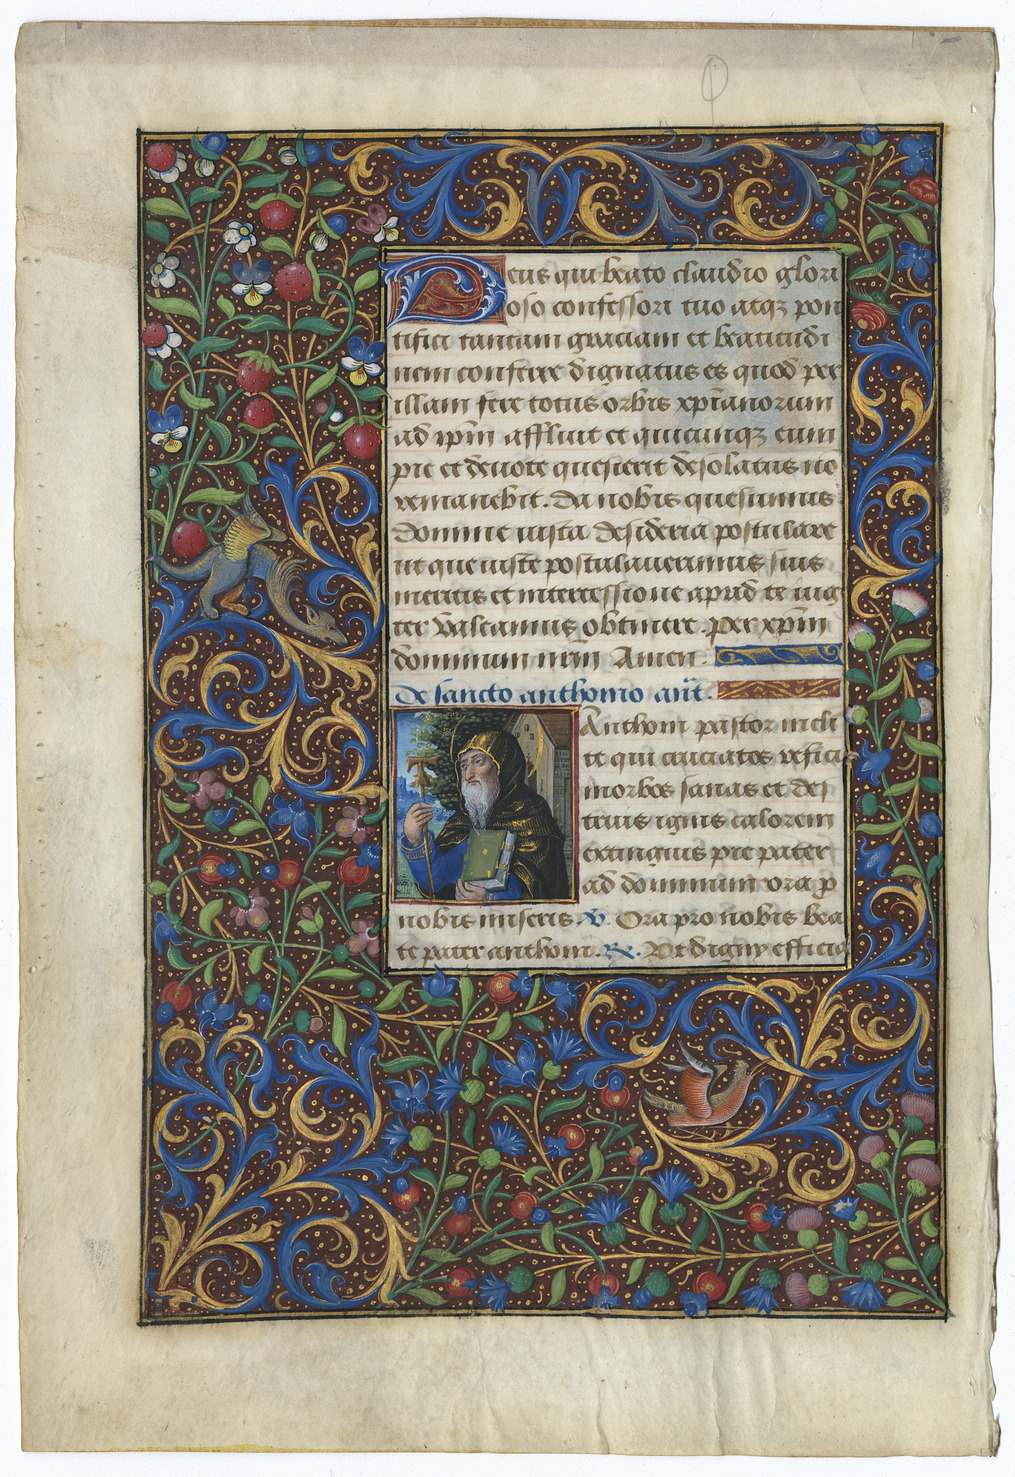 Deus qui beato claudio glori
oso confessori tuo atqz pon
tifici tantam graciam et beatitudi
nem conferre dignatus es quod per
illam fere totus orbis xpianorum
ad ipm affluit et quicunqz eum
pie et devote quesierit desolatus no
remanebit. Da nobis quesumus
domine iusta desideria postulare
ut que iuste postulaverimus suis
meritis et intercessione apud te iug
ter valeamus obtinere. per xpm
dominum nrm Amen.
De sancto anthonio ant.
Anthoni pastor incli
te qui cruciatos refici
morbos sanas et des
truis ignis calorem
extinguis pie pater
ad dominum ora p
nobis miseris. V. Ora pro nobis bea
te pater anthoni. R. Ut digny effici